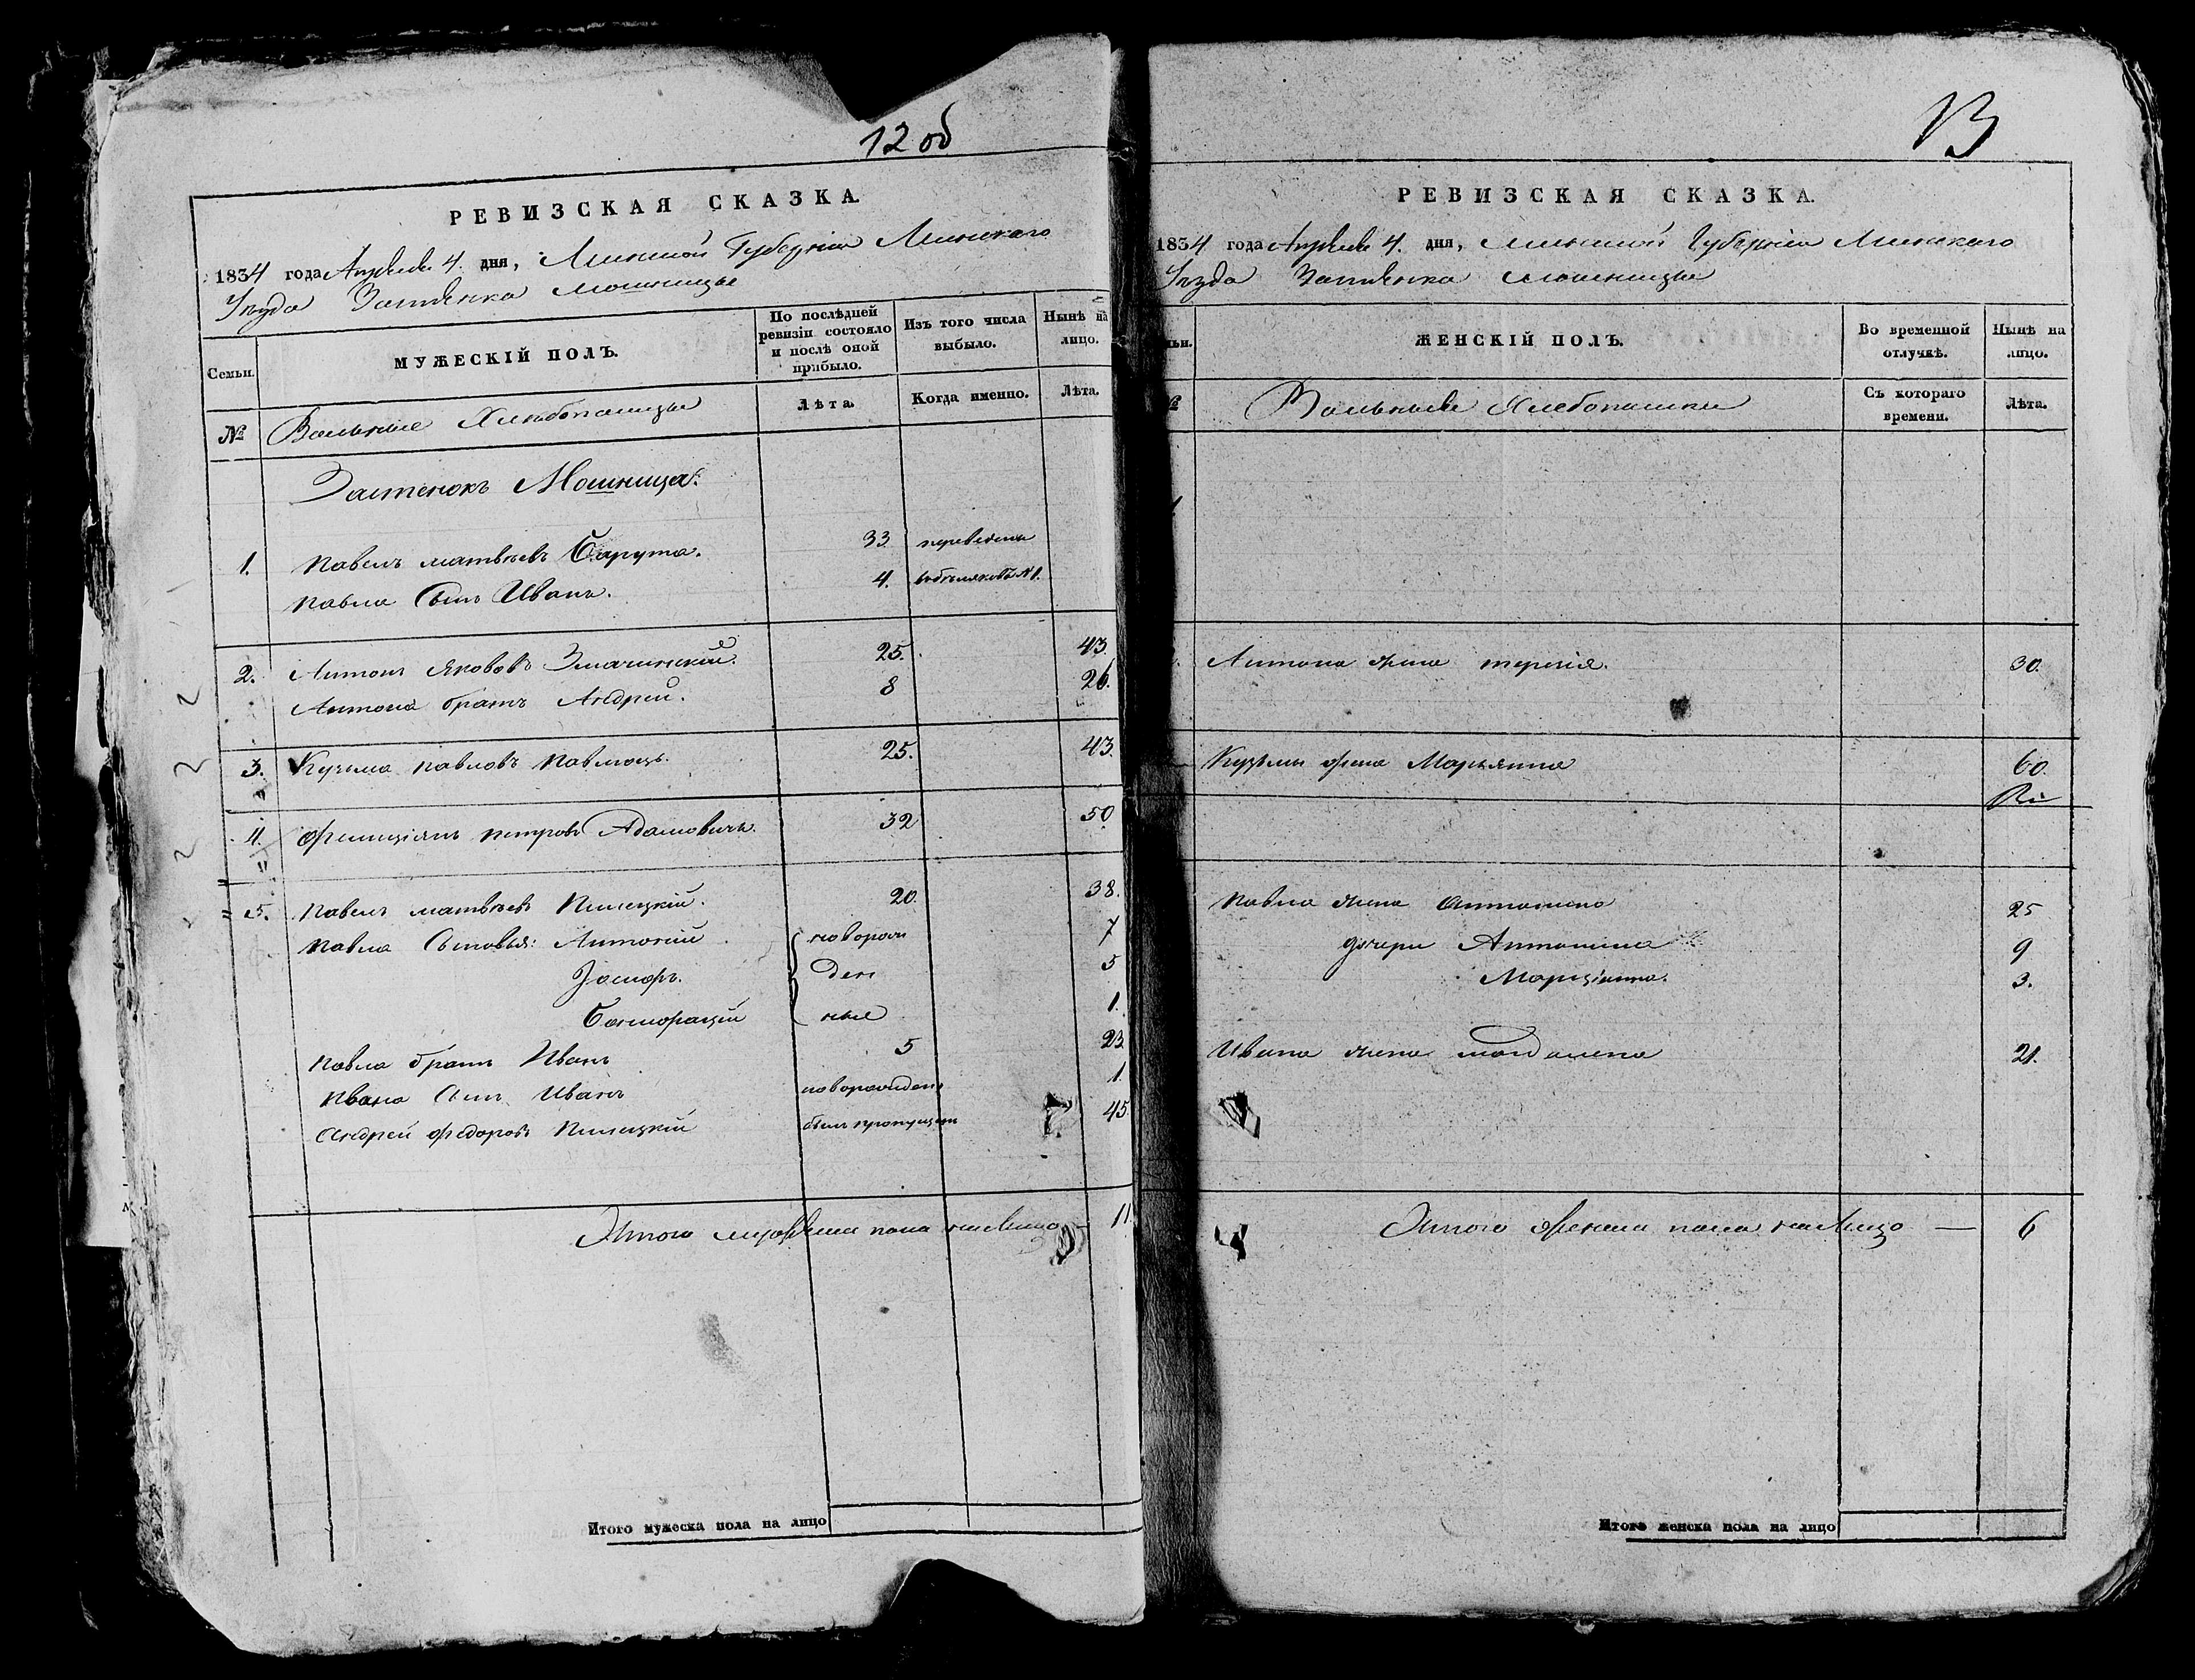 12 об
РЕВИЗСКАЯ СКАЗКА.
1834 года Апреля 4. дня, Минской Губернии Минскаго
Уезда Застѣнка Мошницы
Семьи.
МУЖЕСКІЙ ПОЛЪ.
По послѣдней ревизіи состояло и послѣ оной прибыло.
Изъ того числа выбыло.
Нынѣ на лицо.
№
Вольные Хлебопашцы
Лѣта.
Когда именно.
Лѣта.
Застенокъ Мошница.
1. Павелъ Матвѣевъ Барута. 33 переведены
Павла Сынъ Иванъ. 4. №1.
2. Антонъ Яковлевъ 25. 43.
Антона братъ Андрей. 8 26.
3. Кузьма Павловъ 25. 43.
4. Фелиціянъ Петровъ Адамовичъ. 32 50
5. Павелъ Матвѣевъ Пилецкій. 20. 38.
Павла Сыновья: Антоній новорож 7
Іосифъ. ден 5
Бонифацій ные 1.
Павла братъ Иванъ 5 23
Ивана Сынъ Иванъ новорожденъ 1.
Андрей Федоровъ Пилецкій былъ пропущенъ 45
Итого мужеска пола налицо 11
Итого мужеска пола на лицо
13
РЕВИЗСКАЯ СКАЗКА.
1834 года Апреля 4. дня, Минской Губерніи Минскаго
Уезда Застѣнка Мошницы
ЖЕНСКІЙ ПОЛЪ.
Во временной отлучкѣ.
Нынѣ на лицо.
Вольные Хлебопашцы
Съ котораго времени.
Лѣта.
Антона жена Терезія. 30.
Кузьмы жена Марьянна 60.
Павла жена Антонина 25
дочери Антонина 9
Марціанна. 3.
Ивана жена Магдалена 21.
Итого женска пола налицо — 6
Итого женска пола на лицо